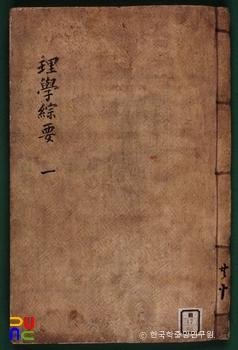 理學綜要 一
共十
© 한국학중앙연구원